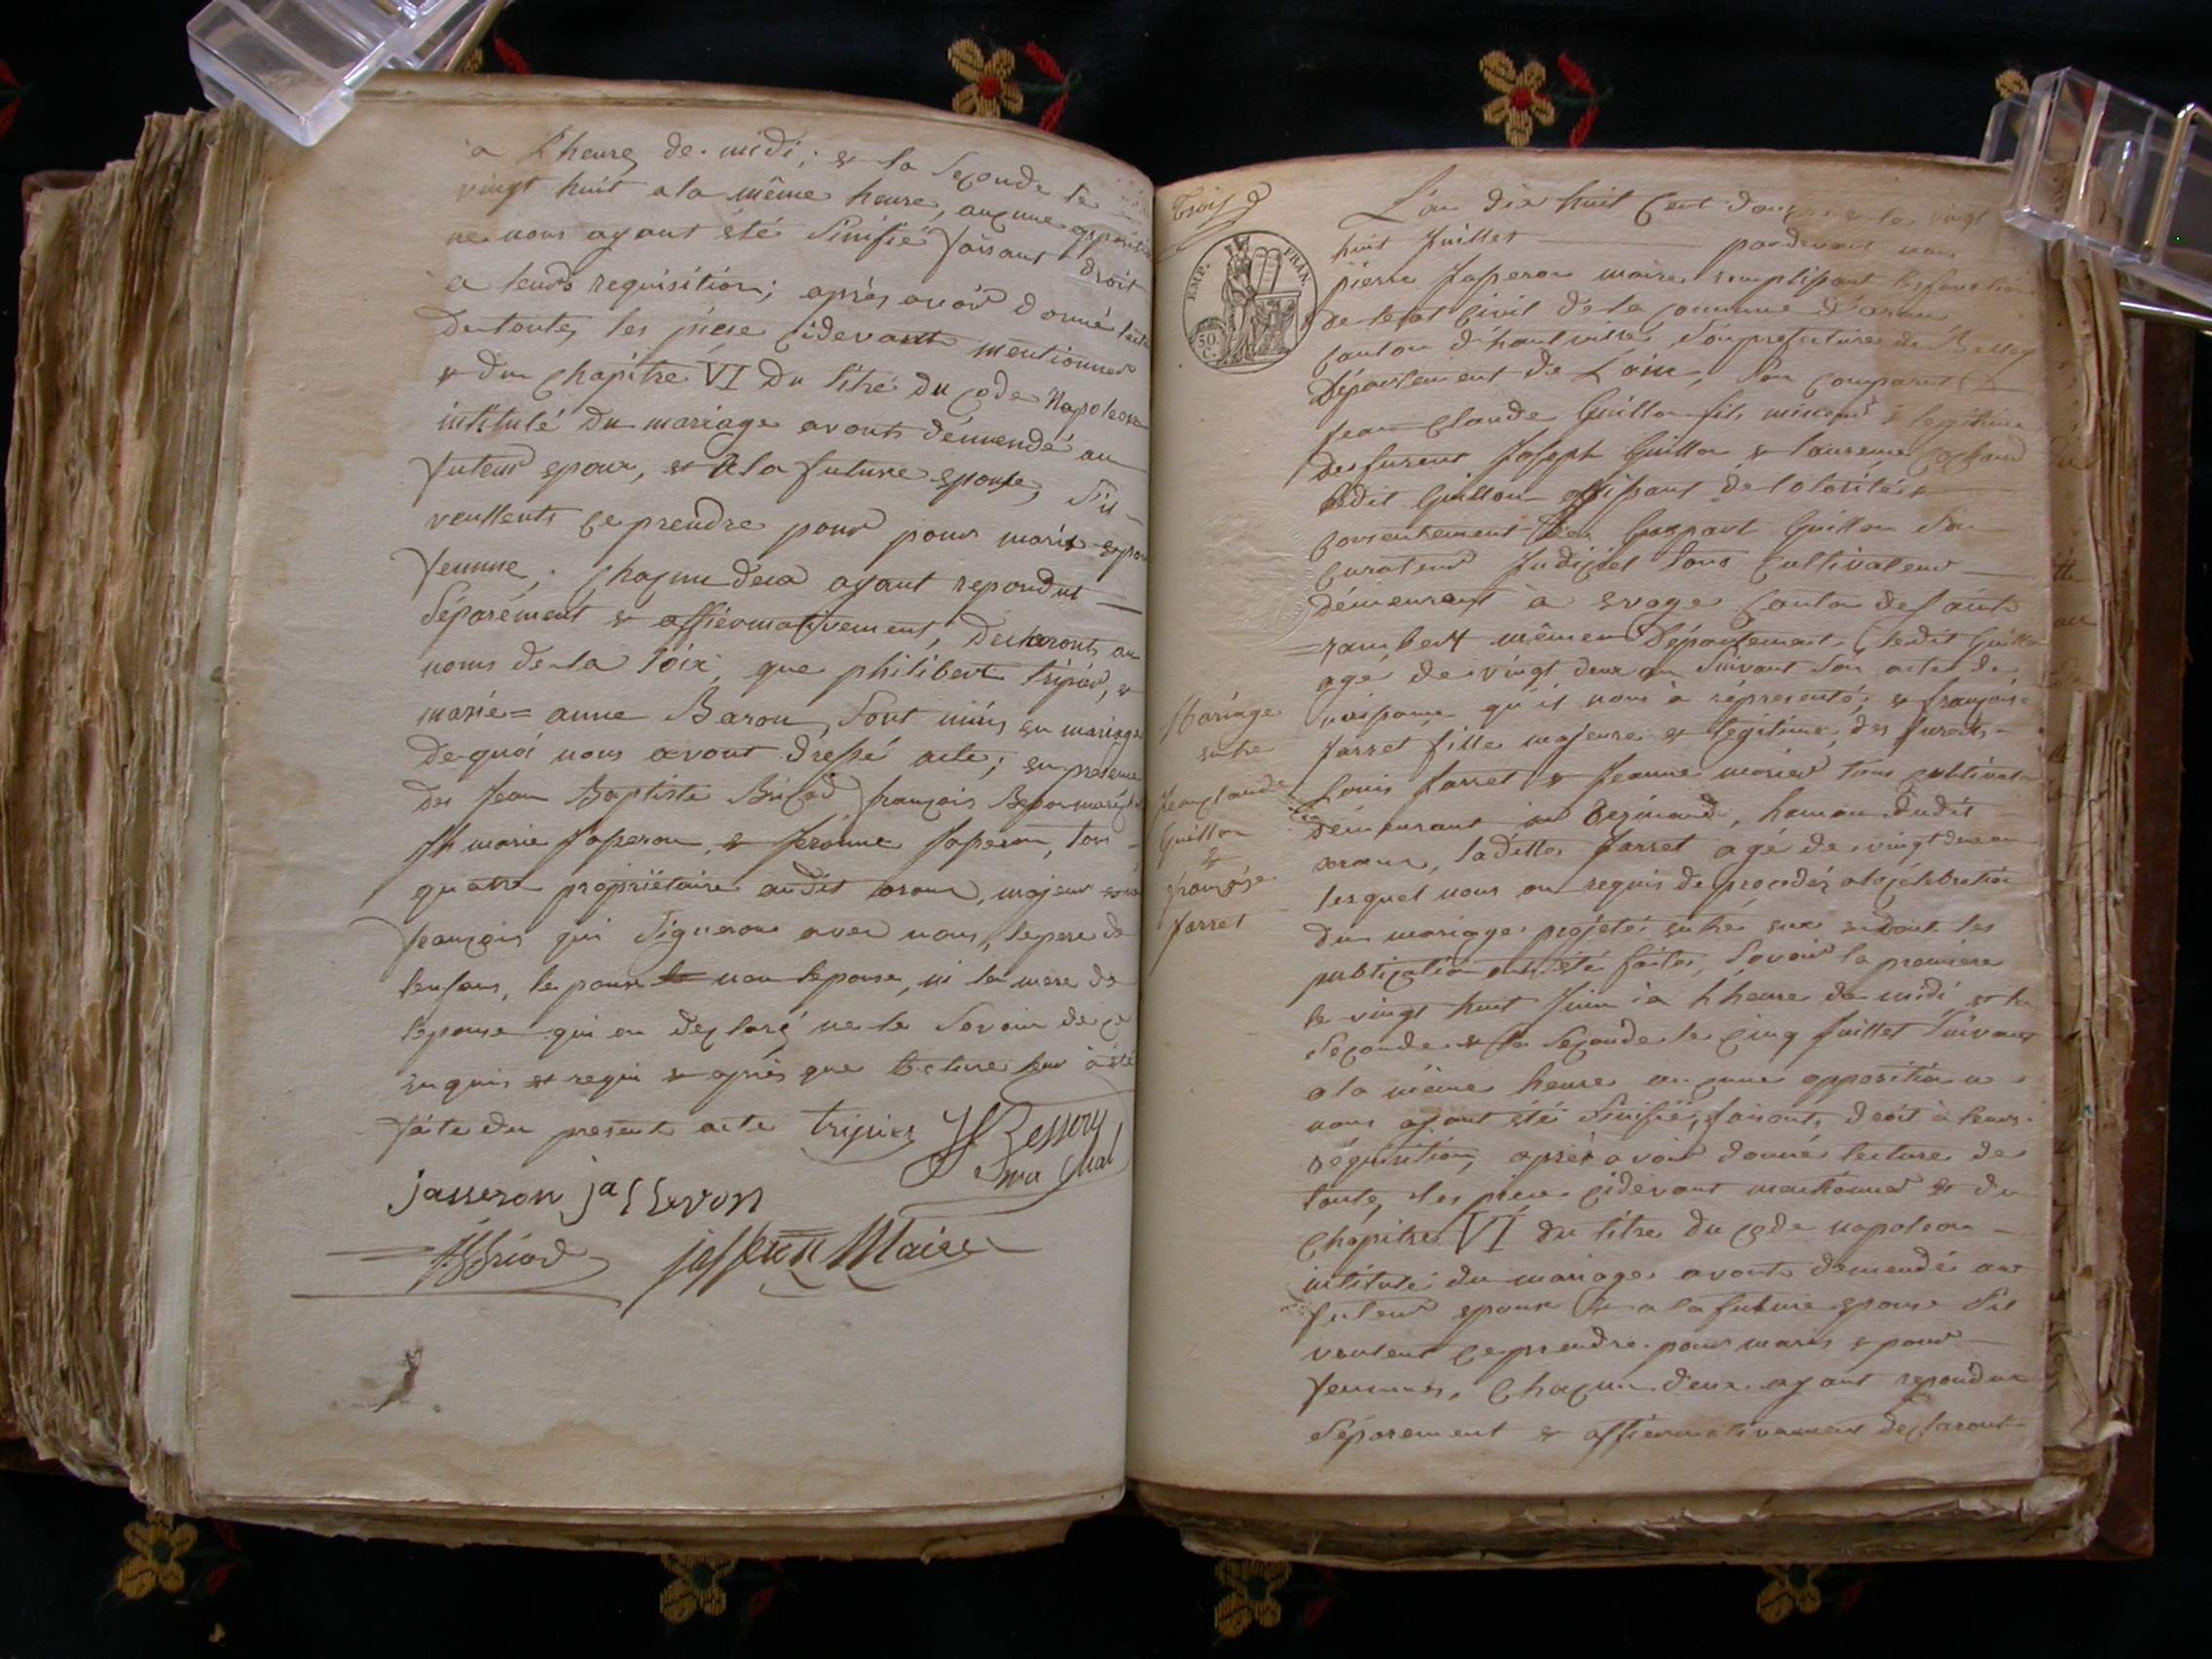 a L'heure de midi; & la Seconde le
vingt huit a la même heure, aucune opposition
ne nous ayant été Sinifié faisant droit
a leurs requisition; après avoir donné lecture
de toute les piese cidevant mentionner
& du chapitre VI du titre du code Napoleon
intitulé du mariage avont démendé au
futeur epoux, & a la future epouse, S'il
veullents ce prendre pour pour maris & pour
femme; chaqun deux ayant repondut
Séparément & affiermativement, declaronts au
noms de la loix que philibert tripier, &
marie = anne Baron, Sont unis en mariage
de quoi nous avont dressé acte; en présence
des Jean Baptiste Bricod françois
Jh marie Jaseron, & Jerome Jaseron, tous
quatre propriétaire audit aranc, majeur
françois qui Signeron avec nous, le pere de
lenfans, le poux non lepouse, ni la mere de
lepouse qui on declaré ne le Savoir de ce
enquis & requi & après que lecture leur a été
faite du present acte tripier JF Bessery
ma chal
jasseron jasseron
JBBricod jasseron Maire
Trois
EMP. FRAN.
50 C.
L'an dix huit cent douze & le vingt
huit Juillet pardevant nous
pierre Jaseron maire remplissant les fonction
de letat civil de la commune d'aranc
canton d'hauteville, Souprefecture de Belley
Département de L'ain, Son comparut
Jean Claude Guillon fils mineur & legitime
des furent Joseph Guillon &
ledit Guillon agissant de l'otorité &
consentement de Gaspart Guillon Son
curateur Judiciel tous cultivateur
démeurant à evoge canton de Saint
= rambert même Département, ledit Guillon
agé de vingt deux an Suivant Son acte de
naissance qu'il nous à réprésenté; & françoise
Jarret fille majeure & légitime des furent
Louis Jarret & Jeanne tous cultivateur
démeurant hamau dudit
aranc, laditte Jarret agé de vingt deux an
lesquel nous on requis de procedér a la célébration
du mariage projété entre eux & dont les
publication ont été faites, Savoir la première
le vingt huit Juin à l'heure de midi & la
Seconde & la Seconde le cinq Juillet Suivant
a la même heure aucune opposition ne
nous ayant été Sinifié, faisant droit à leurs
réquisition, après avoir donné lecture de
toute les piece cidevant mentionner & du
Chapitre VI du titre du code napoleon
intitulé du mariage avont demendé au
futeur epoux & a la future epouse S'il
veulent ce prendre pour maris & pour
femmes, Chaqun deux ayant repondut
Séparement & affiermativement declaront
Mariage
entre
Jean claude
Guillon
&
françoise
Jarret